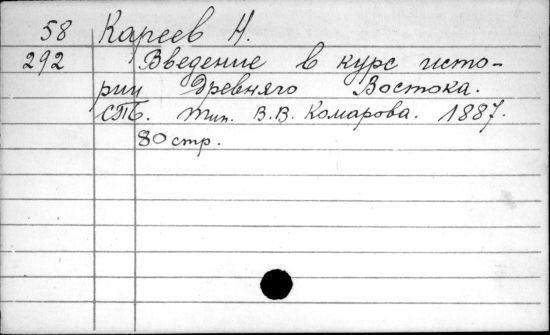 58 Кареев Н.
292 Введение в курс исто-
рии Древняго Востока.
СПБ. Тип. В.В. Комарова. 1887.
80 стр.